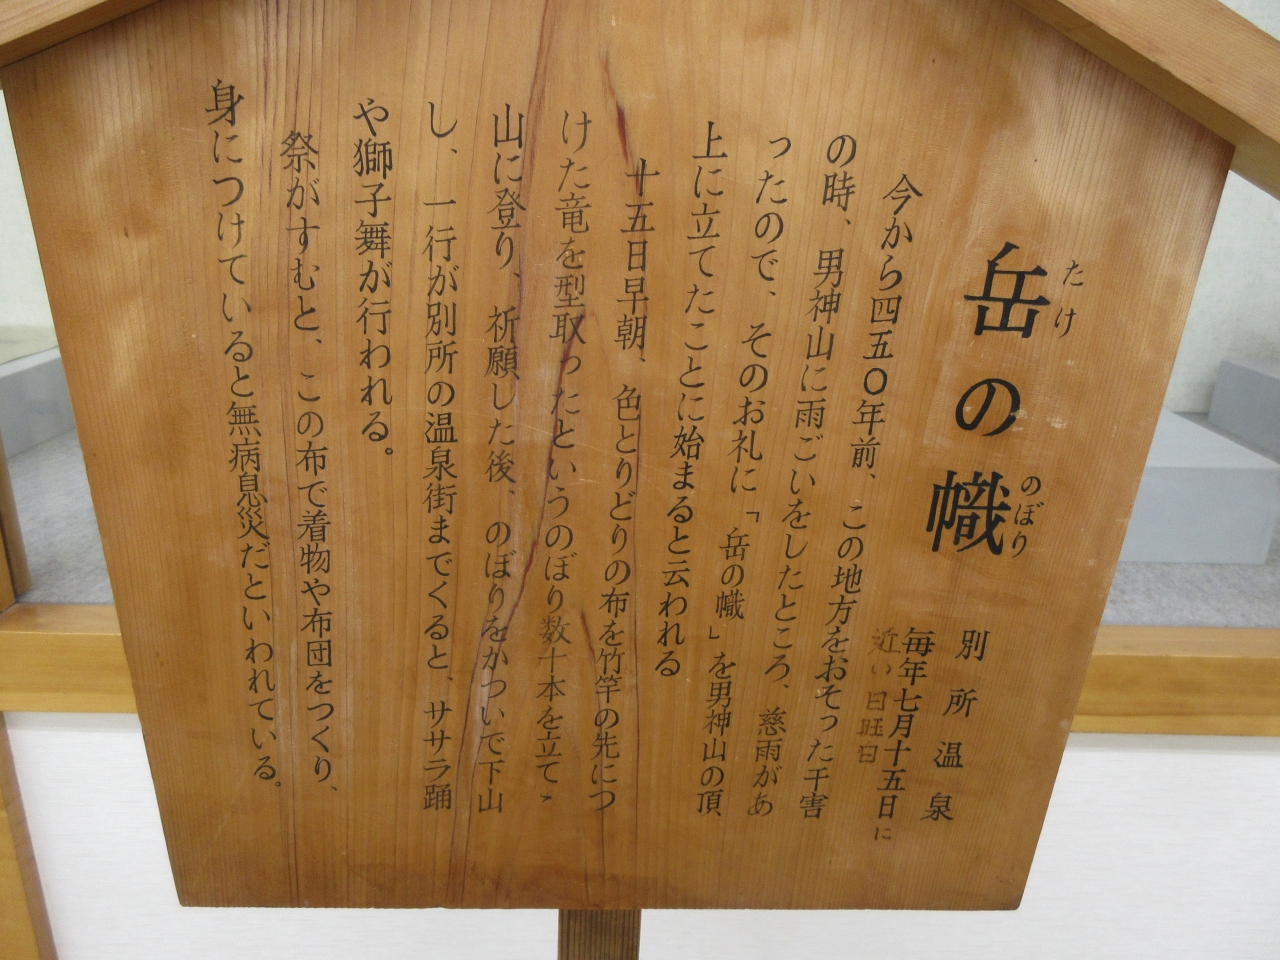 岳の幟
たけ
のぼり
別所温泉
毎年七月十五日に
近い日旺日
今から四五〇年前、この地方をおそった干害
の時、男神山に雨ごいをしたところ、慈雨があ
ったので、そのお礼に「岳の幟」を男神山の頂
上に立てたことに始まると云われる
十五日早朝、色とりどりの布を竹竿の先につ
けた竜を型取ったというのぼり数十本を立て、
山に登り、祈願した後、のぼりをかついで下山
し、一行が別所の温泉街までくると、ササラ踊
や獅子舞が行われる。
祭がすむと、この布で着物や布団をつくり、
身につけていると無病息災だといわれている。